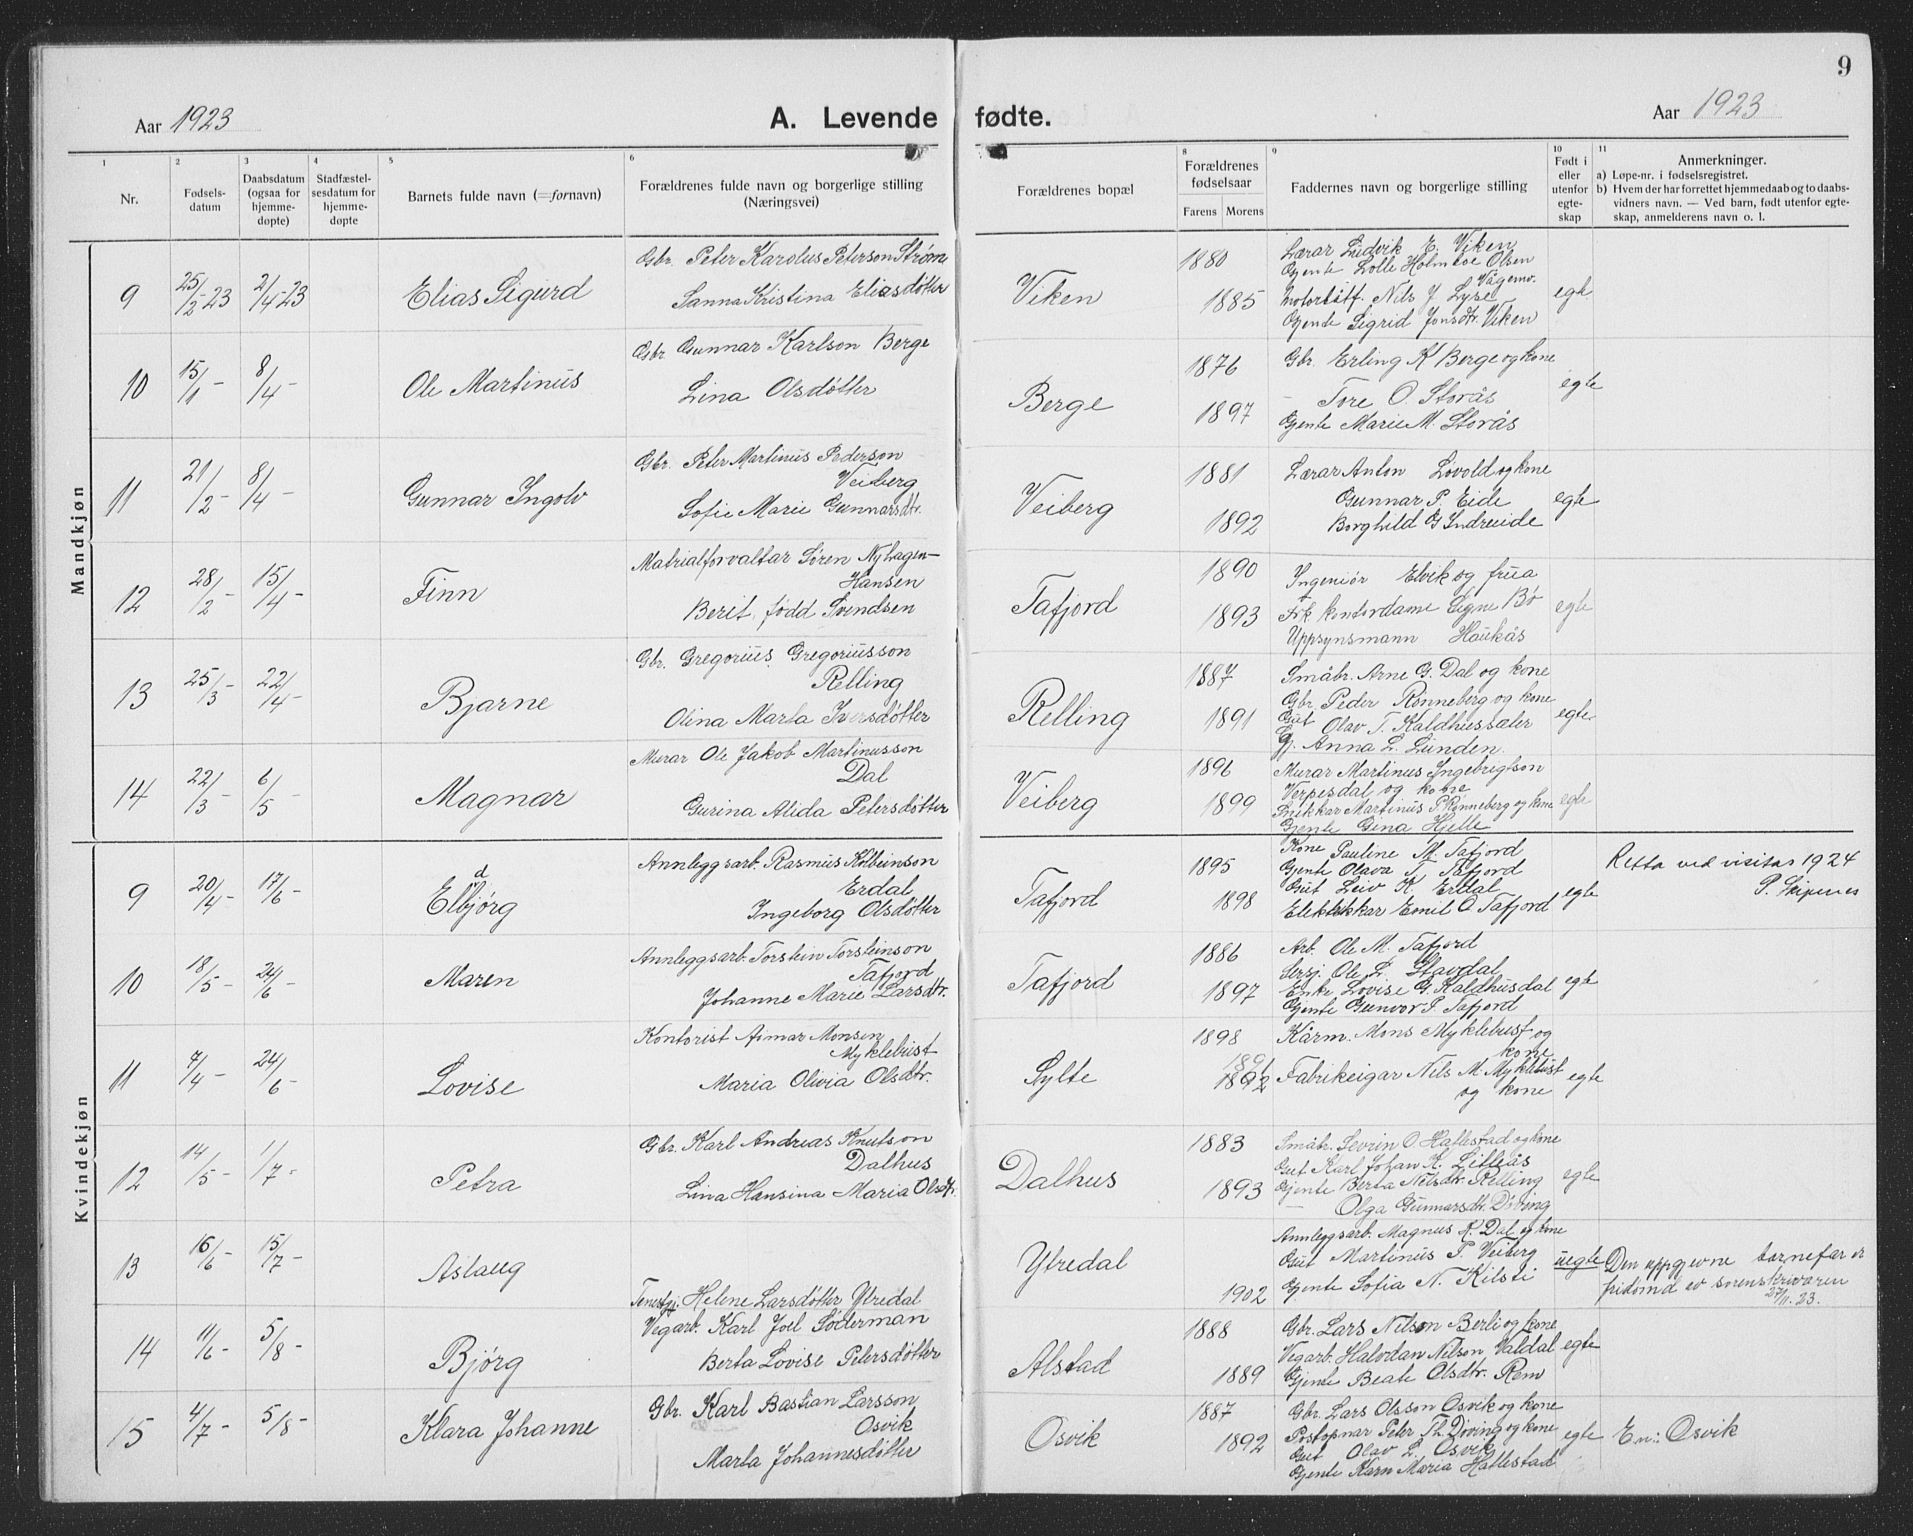 9
Aar 1923
A. Levende fødte.
Aar 1923
1
2
3
4
5
6
8
9
10
11
Nr.
Fødsels-
datum
Daabsdatum
(ogsaa for
hjemme-
døpte)
Stadfæstel-
sesdatum for
hjemme-
døpte
Barnets fulde navn (=fornavn)
Forældrenes fulde navn og borgerlige stilling
(Næringsvei)
Forældrenes bopæl
Forældrenes
fødselsaar
Farens
Morens
Faddernes navn og borgerlige stilling
Født i
eller
utenfor
egte-
skap
Anmerkninger.
a) Løpe-nr. i fødselsregistret.
b) Hvem der har forrettet hjemmedaab og to daabs-
vidners navn. — Ved barn, født utenfor egte-
skap, anmelderens navn o. l.
Mandkjøn
9
25/2-23
2/4-23
Elias Sigurd
Gbr. Peter Karolus Peterson Strøm
Sanna Kristina Eliasdøtter
Viken
1880
1885
Lærar Ludvik E. Viken
Gjente Lolle Holmboe Olsen
Vågemo.
Nils J. Lyse
Gjente Sigrid Jonsdtr. Viken
egte
10
15/1 -
8/4 -
Ole Martinus
Gbr. Gunnar Karlson Berge
Lina Olsdøtter
Berge
1876
1897
Gbr. Erling K Berge og kone
- Tore O. Storås
Gjente Marie M. Storås
egte
11
21/2 -
8/4 -
Gunnar Ingolv
Gbr. Peter Martinus Pederson
Veiberg
Sofie Marie Gunnarsdtr.
Veiberg
1881
1892
Lærar Anton Løvold og kone
Gunnar P. Eide
Borghild G Indreeide
egte
12
28/2 -
15/4 -
Finn
Matrialforvaltar Søren Nyhagen-
Hansen
Berit, fødd Svendsen
Tafjord
1890
1893
Ingeniør Elvik og frua
Frk. kontordame Signe Bø
Uppsynsmann Haukås
egte
13
25/3 -
22/4 -
Bjarne
Gbr. Gregorius Gregoriusson
Relling
Olina Marta Iversdøtter
Relling
1887
1891
Småbr. Arne G. Dal og kone
Gbr. Peder Rønneberg og kone
Gut Olav T. Kaldhussæter
Gj. Anna L. Lunden.
egte
14
22/3 -
6/5 -
Magnar
Murar Ole Jakob Martinusson
Dal
Gurina Alida Petersdøtter
Veiberg
1896
1899
Murar Martinus Ingebrigtson
Verpesdal og kone
Snikkar Martinus P. Rønneberg og kone
Gjente Gina Hjelle
egte
Kvindekjøn
9
20/4 -
17/6 -
Eldbjørg
Annleggsarb. Rasmus Kolbeinson
Erdal
Ingeborg Olsdøtter
Tafjord
1895
1898
Kone Pauline M. Tafjord
Gjente Olava T. Tafjord
Gut Leiv K. Erdal
Elektrikar Emil O. Tafjord
egte
Retta ved visitas 1924
P. Skipenes
10
18/5 -
24/6 -
Maren
Annleggsarb. Torstein Torsteinson
Tafjord
Johanne Marie Larsdtr.
Tafjord
1886
1897
Arb. Ole M. Tafjord
Sersj. Ole L. Stavdal
Enke Lovise G. Kaldhusdal
Gjente Gunvor P. Tafjord
egte
11
7/4 -
24/6 -
Lovise
Kontorist Asmar Monsen
Myklebust
Maria Olivia Olsdtr.
Sylte
1898
1892
Kårm. Mons Myklebust og
kone
Fabrikeigar Nils M. Myklebust
og kone
egte
12
14/5 -
1/7 -
Petra
Gbr. Karl Andreas Knutson
Dalhus
Lina Hansina Maria Olsdtr.
Dalhus
1883
1893
Småbr. Sevrin O. Hatlestad og kone
Gut Karl Johan K. Litleås
Gjente Berta Nilsdtr. Relling
- Olga Gunnarsdtr. Døving
egte
13
16/6 -
15/7 -
Aslaug
Tenestgj. Helene Larsdøtter Ytredal
Ytredal
1902
Annleggsarb. Magnus K. Dal og kone
Gut Martinus P. Veiberg
Gjente Sofia N. Kilsti
uegte
Den uppgjevne barnefar er
fridømd av sorenskrivaren
27/11.23.
14
11/6 -
5/8 -
Bjørg
Vegarb. Karl Joel Søderman
Berta Lovise Petersdøtter
Alstad
1888
1889
Gbr. Lars Nilson Berli og kone
Vegarb. Halvdan Nilson Valdal
Gjente Beate Olsdtr. Rem
egte
15
4/7 -
5/8 -
Klara Johanne
Gbr. Karl Bastian Larsson
Osvik
Marta Johannesdøtter
Osvik
1887
1892
Gbr. Lars Olsson Osvik og kone
Postopnar Peter Th. Døving og kone
Gut Olav L. Osvik
Gjente Karn Maria Hatlestad
egte
En: Osvik